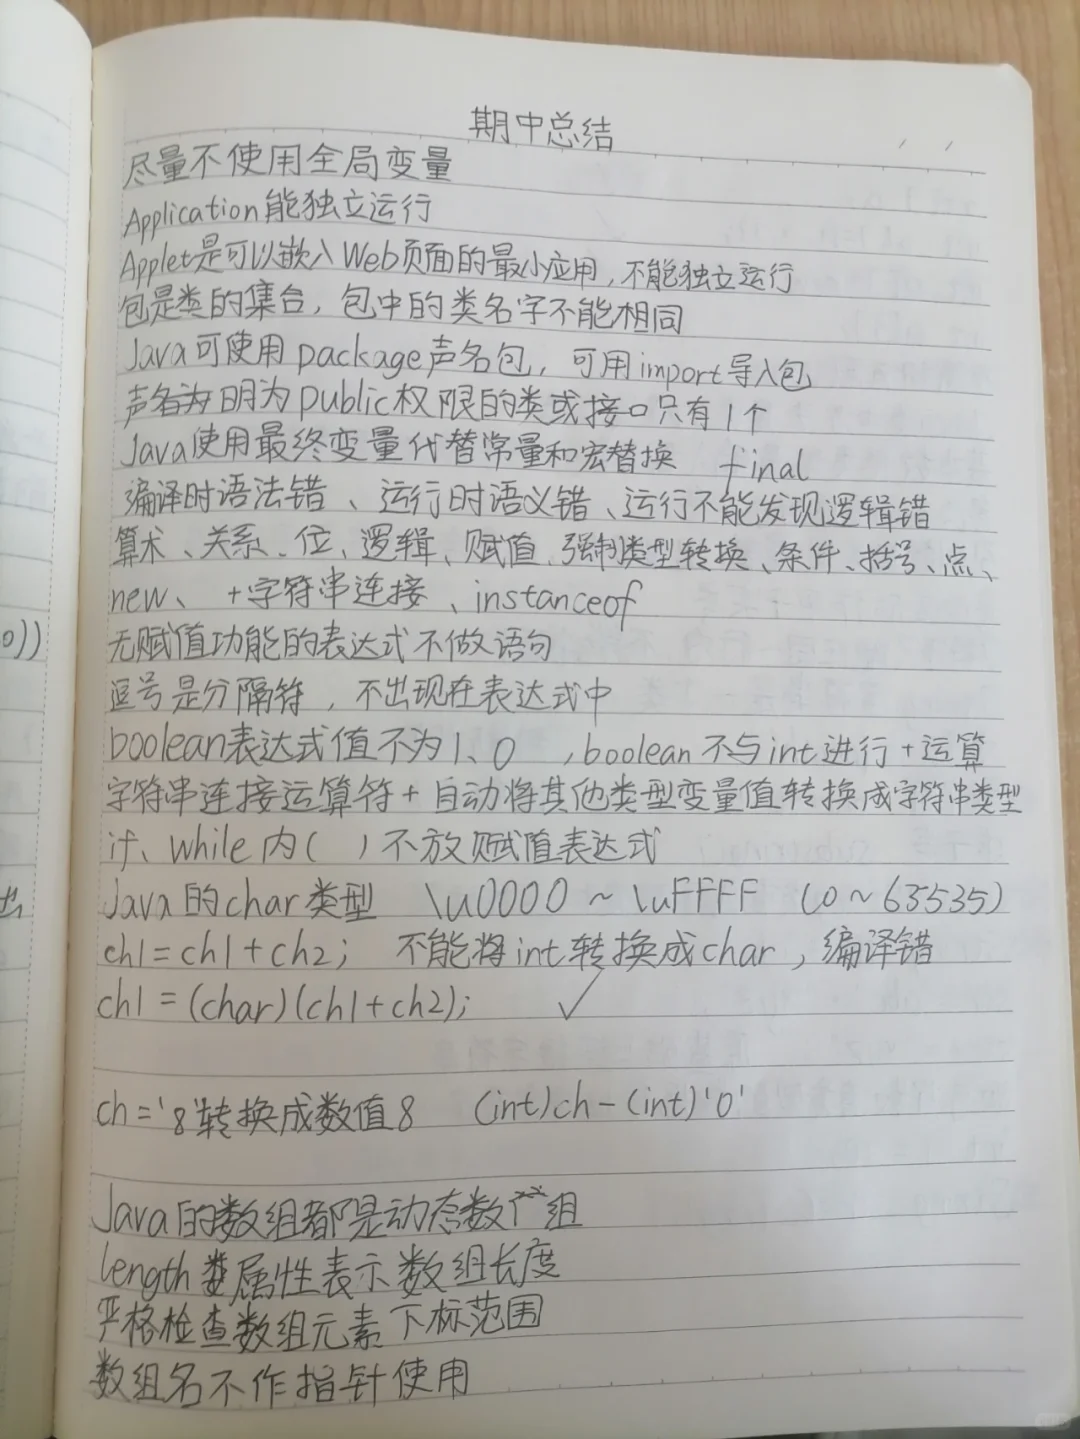 期中总结
尽量不使用全局变量
Application能独立运行
Applet是可以嵌入Web页面的最小应用,不能独立运行
包是类的集合,包中的类名字不能相同
Java可使用package声名包,可用import导入包
声名为明为public权限的类或接口只有1个
Java使用最终变量代替常量和宏替换 final
编译时语法错、运行时语义错、运行不能发现逻辑错
算术、关系、位、逻辑、赋值、强制类型转换、条件、括号、点、
new、 +字符串连接、instanceof
无赋值功能的表达式不做语句
逗号是分隔符,不出现在表达式中
boolean表达式值不为1、0 ,boolean不与int进行+运算
字符串连接运算符+自动将其他类型变量值转换成字符串类型
if、while内( )不放赋值表达式
Java的char类型 \u0000~\uFFFF (0~63535)
ch1=ch1+ch2; 不能将int转换成char,编译错
ch1=(char)(ch1+ch2); ✓
ch='8'转换成数值8 (int)ch-(int)'0'
Java的数组都是动态数组
length属性表示数组长度
严格检查数组元素下标范围
数组名不作指针使用